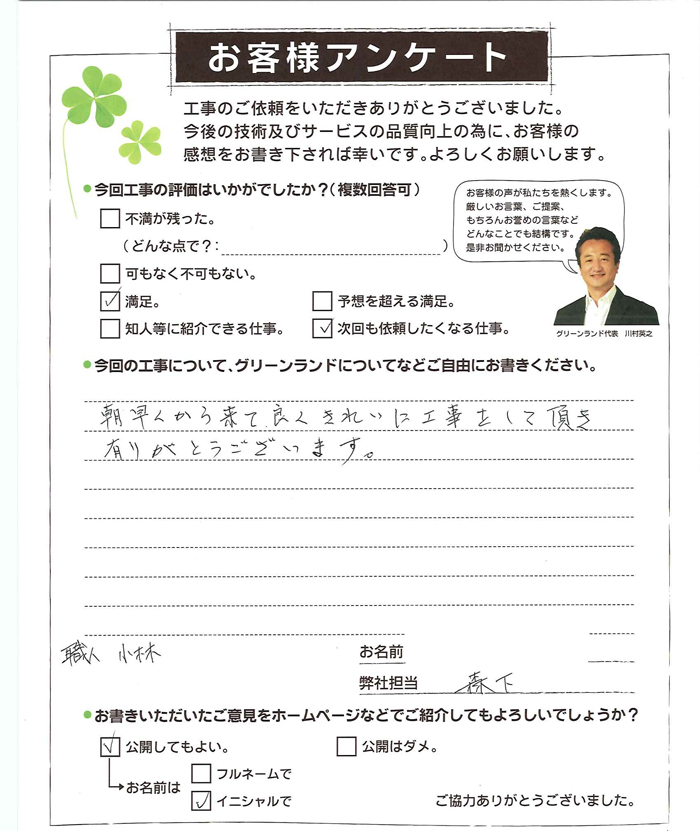 お客様アンケート
工事のご依頼をいただきありがとうございました。
今後の技術及びサービスの品質向上の為に、お客様の
感想をお書き下されば幸いです。よろしくお願いします。
今回工事の評価はいかがでしたか？（複数回答可）
不満が残った。
（どんな点で？：）
可もなく不可もない。
満足。
予想を超える満足。
知人等に紹介できる仕事。
次回も依頼したくなる仕事。
お客様の声が私たちを熱くします。
厳しいお言葉、ご提案、
もちろんお誉めの言葉など
どんなことでも結構です。
是非お聞かせください。
グリーンランド代表 川村英之
今回の工事について、グリーンランドについてなどご自由にお書きください。
朝早くから来て良くきれいに工事をして頂き
有りがとうございます。
職人 小林
お名前
弊社担当 森下
お書きいただいたご意見をホームページなどでご紹介してもよろしいでしょうか？
公開してもよい。
公開はダメ。
お名前は
フルネームで
イニシャルで
ご協力ありがとうございました。